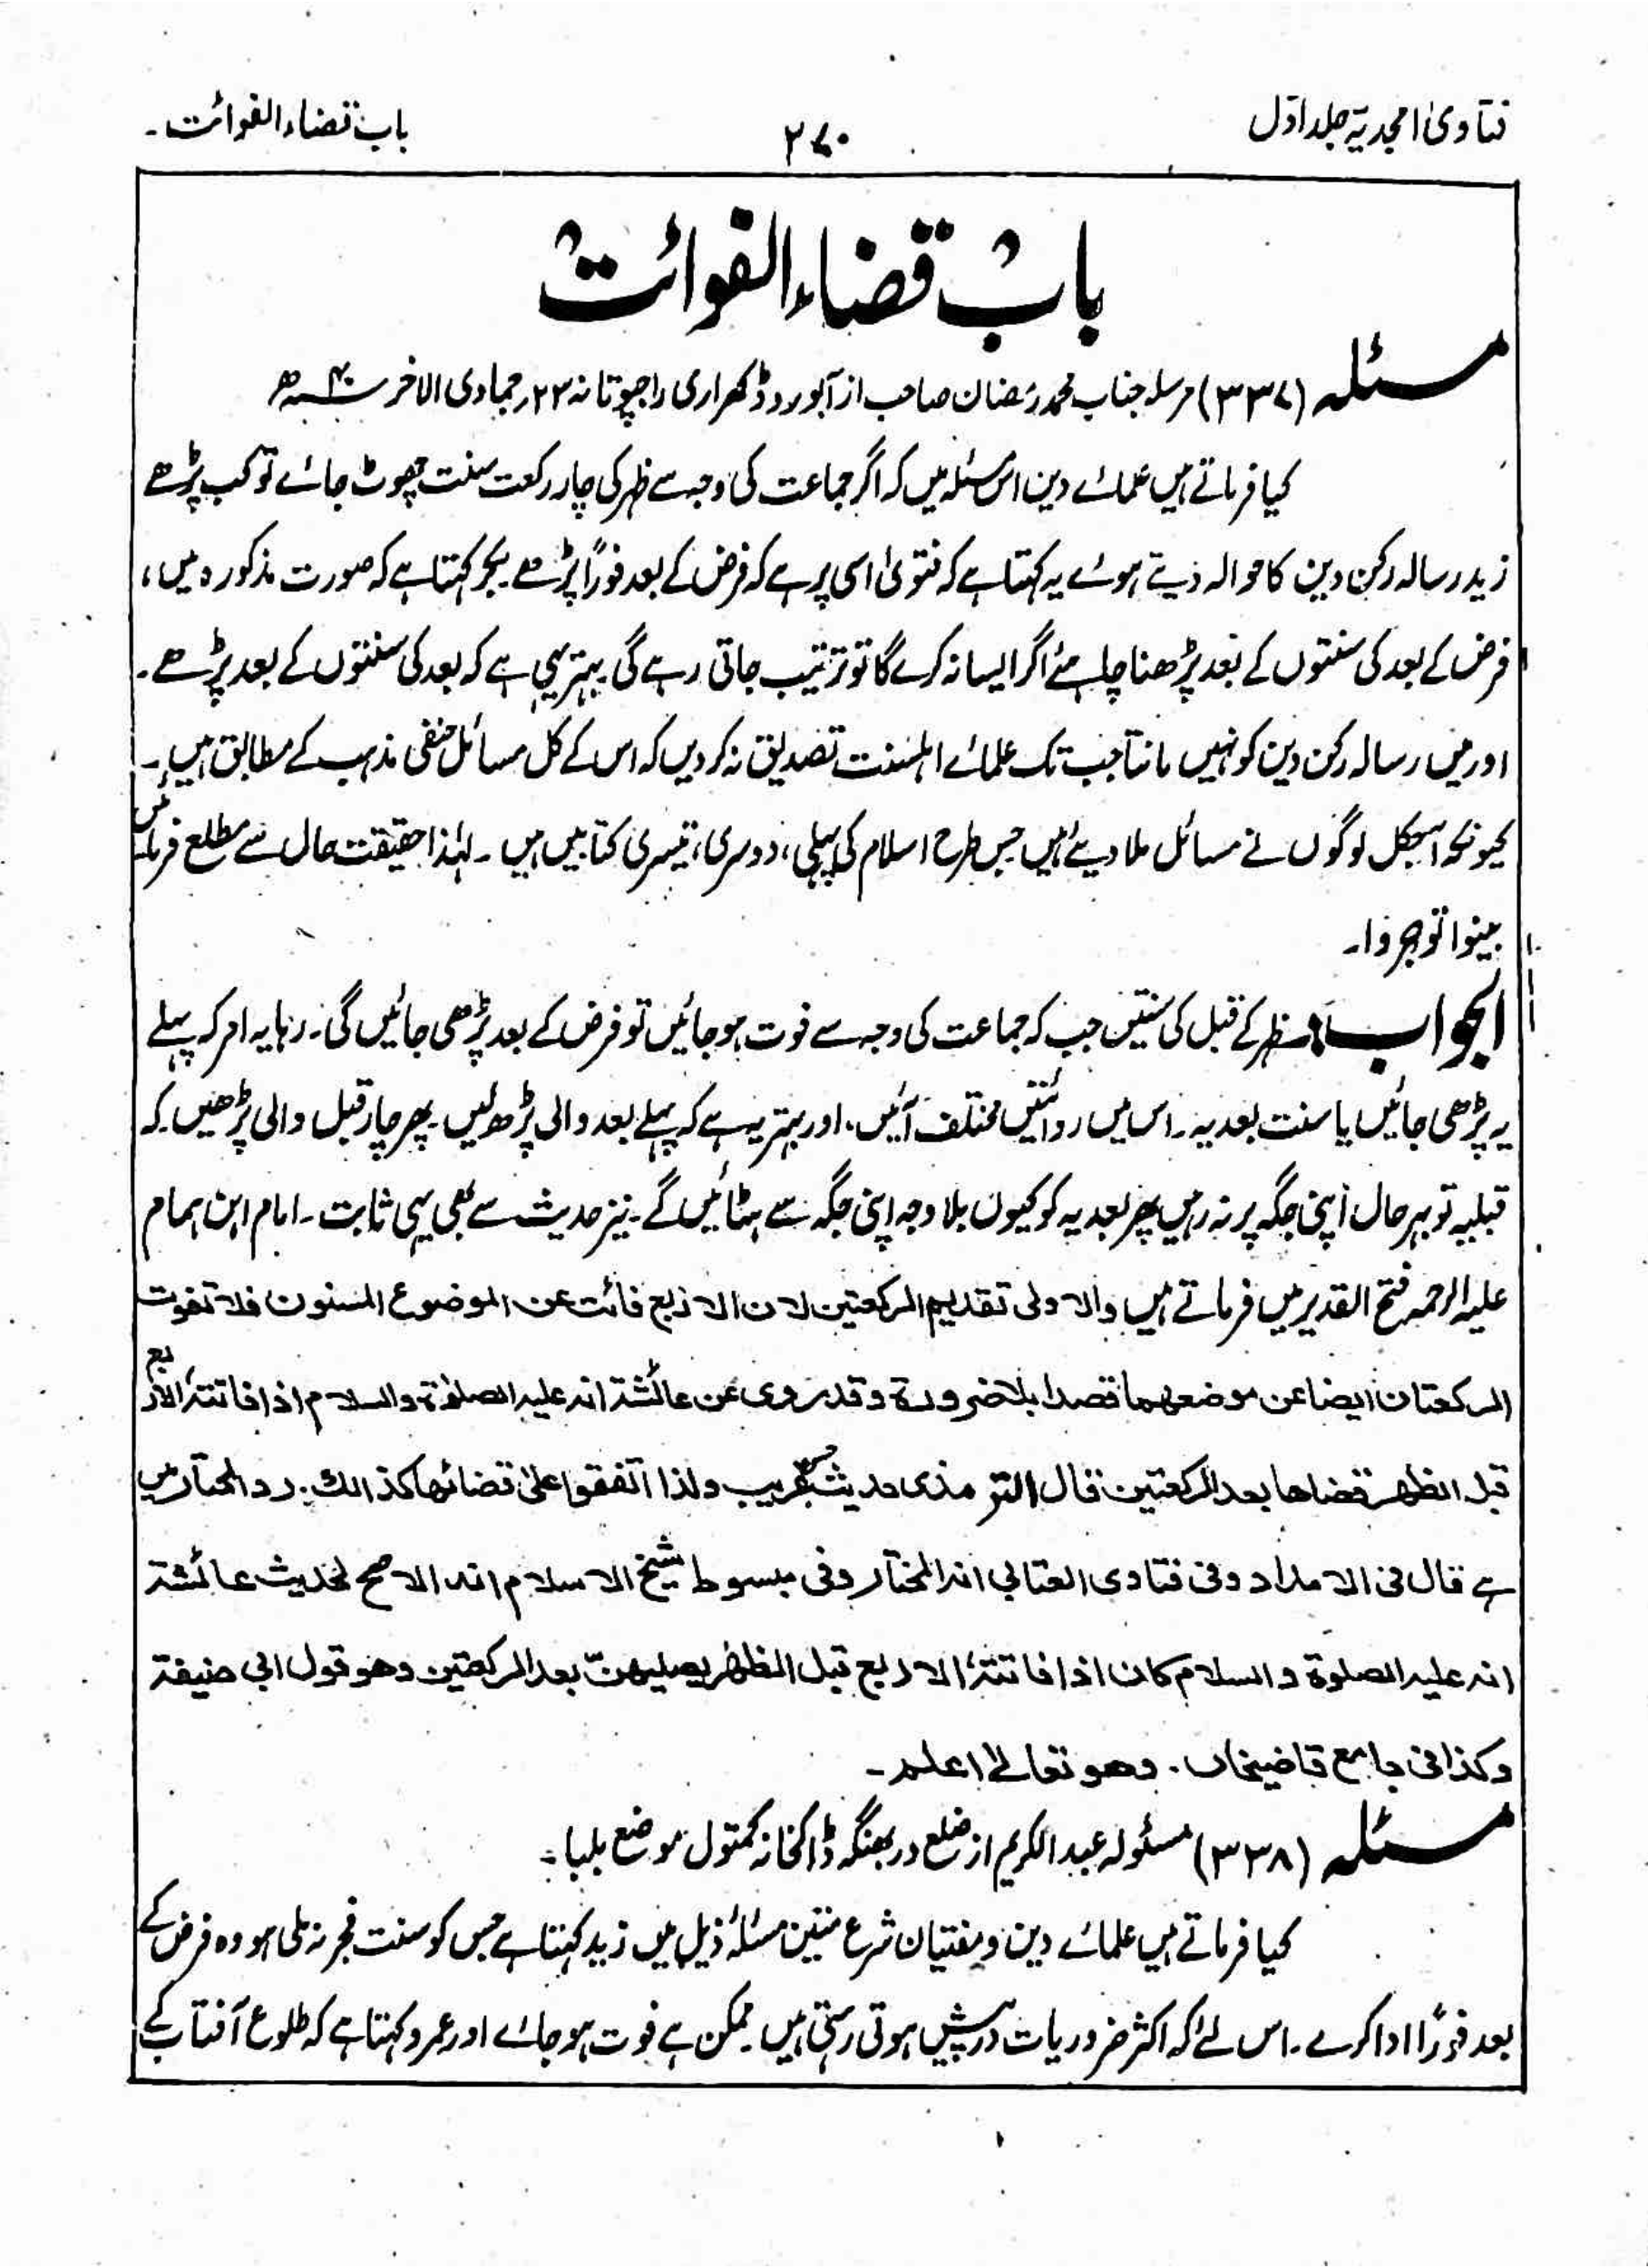 فتاویٰ امجدیہ جلد اوّل
۲۷۰
باب قضاء الفوائت۔
باب قضاء الفوائت
مسئلہ (۳۳۷) مرسلہ جناب محمد رمضان صاحب از آبو روڈ کھراری راجپوتانہ ۲۳؍ جمادی الاخر ۴۰ ھ
کیا فرماتے ہیں علمائے دین اس مسئلہ میں کہ اگر جماعت کی وجہ سے ظہر کی چار رکعت سنت چھوٹ جائے تو کب پڑھے
زید رسالہ رکن دین کا حوالہ دیتے ہوئے یہ کہتا ہے کہ فتویٰ اسی پر ہے کہ فرض کے بعد فوراً پڑھے بکر کہتا ہے کہ صورت مذکورہ میں،
فرض کے بعد کی سنتوں کے بعد پڑھنا چاہئے اگر ایسا نہ کرے گا تو ترتیب جاتی رہے گی بہتر یہی ہے کہ بعد کی سنتوں کے بعد پڑھے۔
اور میں رسالہ رکن دین کو نہیں مانتا جب تک علمائے اہلسنت تصدیق نہ کر دیں کہ اس کے کل مسائل حنفی مذہب کے مطابق ہیں۔
کیونکہ آجکل لوگوں نے مسائل ملا دیئے ہیں جس طرح اسلام کی پہلی، دوسری، تیسری کتابیں ہیں۔ لہٰذا حقیقت حال سے مطلع فرمائیں
بینوا توجروا۔
الجواب: ظہر کے قبل کی سنتیں جب کہ جماعت کی وجہ سے فوت ہو جائیں تو فرض کے بعد پڑھی جائیں گی۔ رہا یہ امر کہ پہلے
یہ پڑھی جائیں یا سنت بعدیہ۔ اس میں روائتیں مختلف آئیں۔ اور بہتر یہ ہے کہ پہلے بعد والی پڑھ لیں۔ پھر چار قبل والی پڑھیں۔ کہ
قبلیہ تو بہر حال اپنی جگہ پر نہ رہیں پھر بعدیہ کو کیوں بلا وجہ اپنی جگہ سے ہٹائیں گے۔ نیز حدیث سے بھی یہی ثابت۔ امام ابن ہمام
علیہ الرحمہ فتح القدیر میں فرماتے ہیں والاولی تقدیم الرکعتین لان الاربع فاتت عن الموضع المسنون فلا تفوت
الرکعتان ایضا عن موضعھما قصدا بلا ضرورۃ وقد روی عن عائشۃ انہ علیہ الصلوٰۃ والسلام اذا فاتتہ الاربع
قبل الظھر قضاھا بعد الرکعتین قال الترمذی حدیث حسن غریب ولذا اتفقوا علیٰ قضائھا کذالک۔ رد المحتار میں
ہے قال فی الامداد وفی فتاوی العتابی انہ المختار وفی مبسوط شیخ الاسلام انہ الاصح لحدیث عائشۃ
انہ علیہ الصلوۃ والسلام کان اذا فاتتہ الاربع قبل الظھر یصلیھن بعد الرکعتین وھو قول ابی حنیفۃ
وکذا فی جامع قاضیخاں۔ وھو تعالےٰ اعلم۔
مسئلہ (۳۳۸) مسئولہ عبد الکریم از ضلع دربھنگہ ڈاکخانہ کمتول موضع بلہا۔
کیا فرماتے ہیں علمائے دین و مفتیان شرع متین مسئلہ ذیل میں زید کہتا ہے جس کو سنت فجر نہ ملی ہو وہ فرض کے
بعد فوراً ادا کرے۔ اس لئے کہ اکثر ضروریات درپیش ہوتی رہتی ہیں۔ ممکن ہے فوت ہو جائے اور عمرو کہتا ہے کہ طلوع آفتاب کے